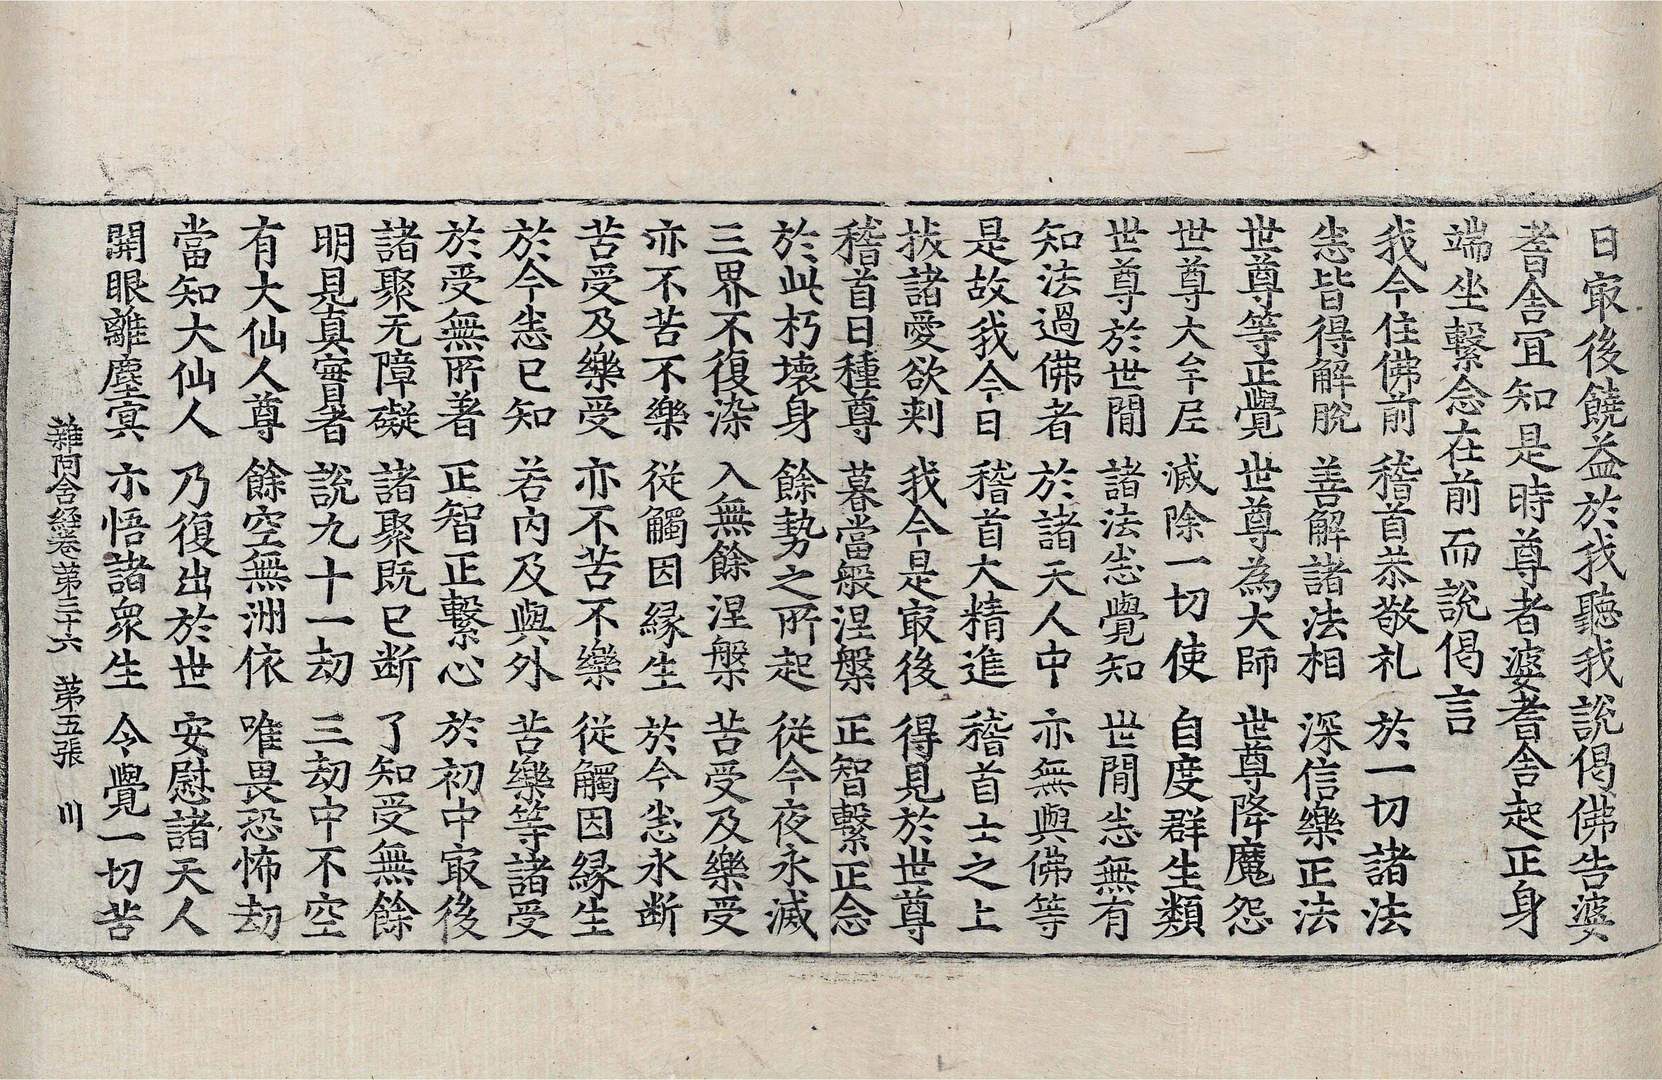 日㝡後饒益於我聽我說偈佛告婆
耆舍冝知是時尊者婆耆舍起正身
端坐繫念在前而說偈言
我今住佛前　稽首恭敬礼　於一切諸法
悉皆得解脫　善解諸法相　深信樂正法
世尊等正覺　世尊為大師　世尊降魔怨
世尊大牟尼　滅除一切使　自度群生類
世尊於世閒　諸法悉覺知　世閒悉無有
知法過佛者　於諸天人中　亦無與佛等
是故我今日　稽首大精進　稽首士之上
拔諸愛欲刾　我今是㝡後　得見於世尊
稽首日種尊　暮當般涅槃　正智繫正念
於此朽壞身　餘勢之所起　從今夜永滅
三界不復染　入無餘涅槃　苦受及樂受
亦不苦不樂　從觸因縁生　於今悉永断
苦受及樂受　亦不苦不樂　從觸因縁生
於今悉已知　若內及與外　苦樂等諸受
於受無所著　正智正繫心　於初中㝡後
諸聚无障礙　諸聚既已断　了知受無餘
明見真實者　說九十一劫　三劫中不空
有大仙人尊　餘空無洲依　唯畏恐怖劫
當知大仙人　乃復出於世　安慰諸天人
開眼離塵冥　示悟諸衆生　令覺一切苦
雜阿含経卷第三十六　第五張　川